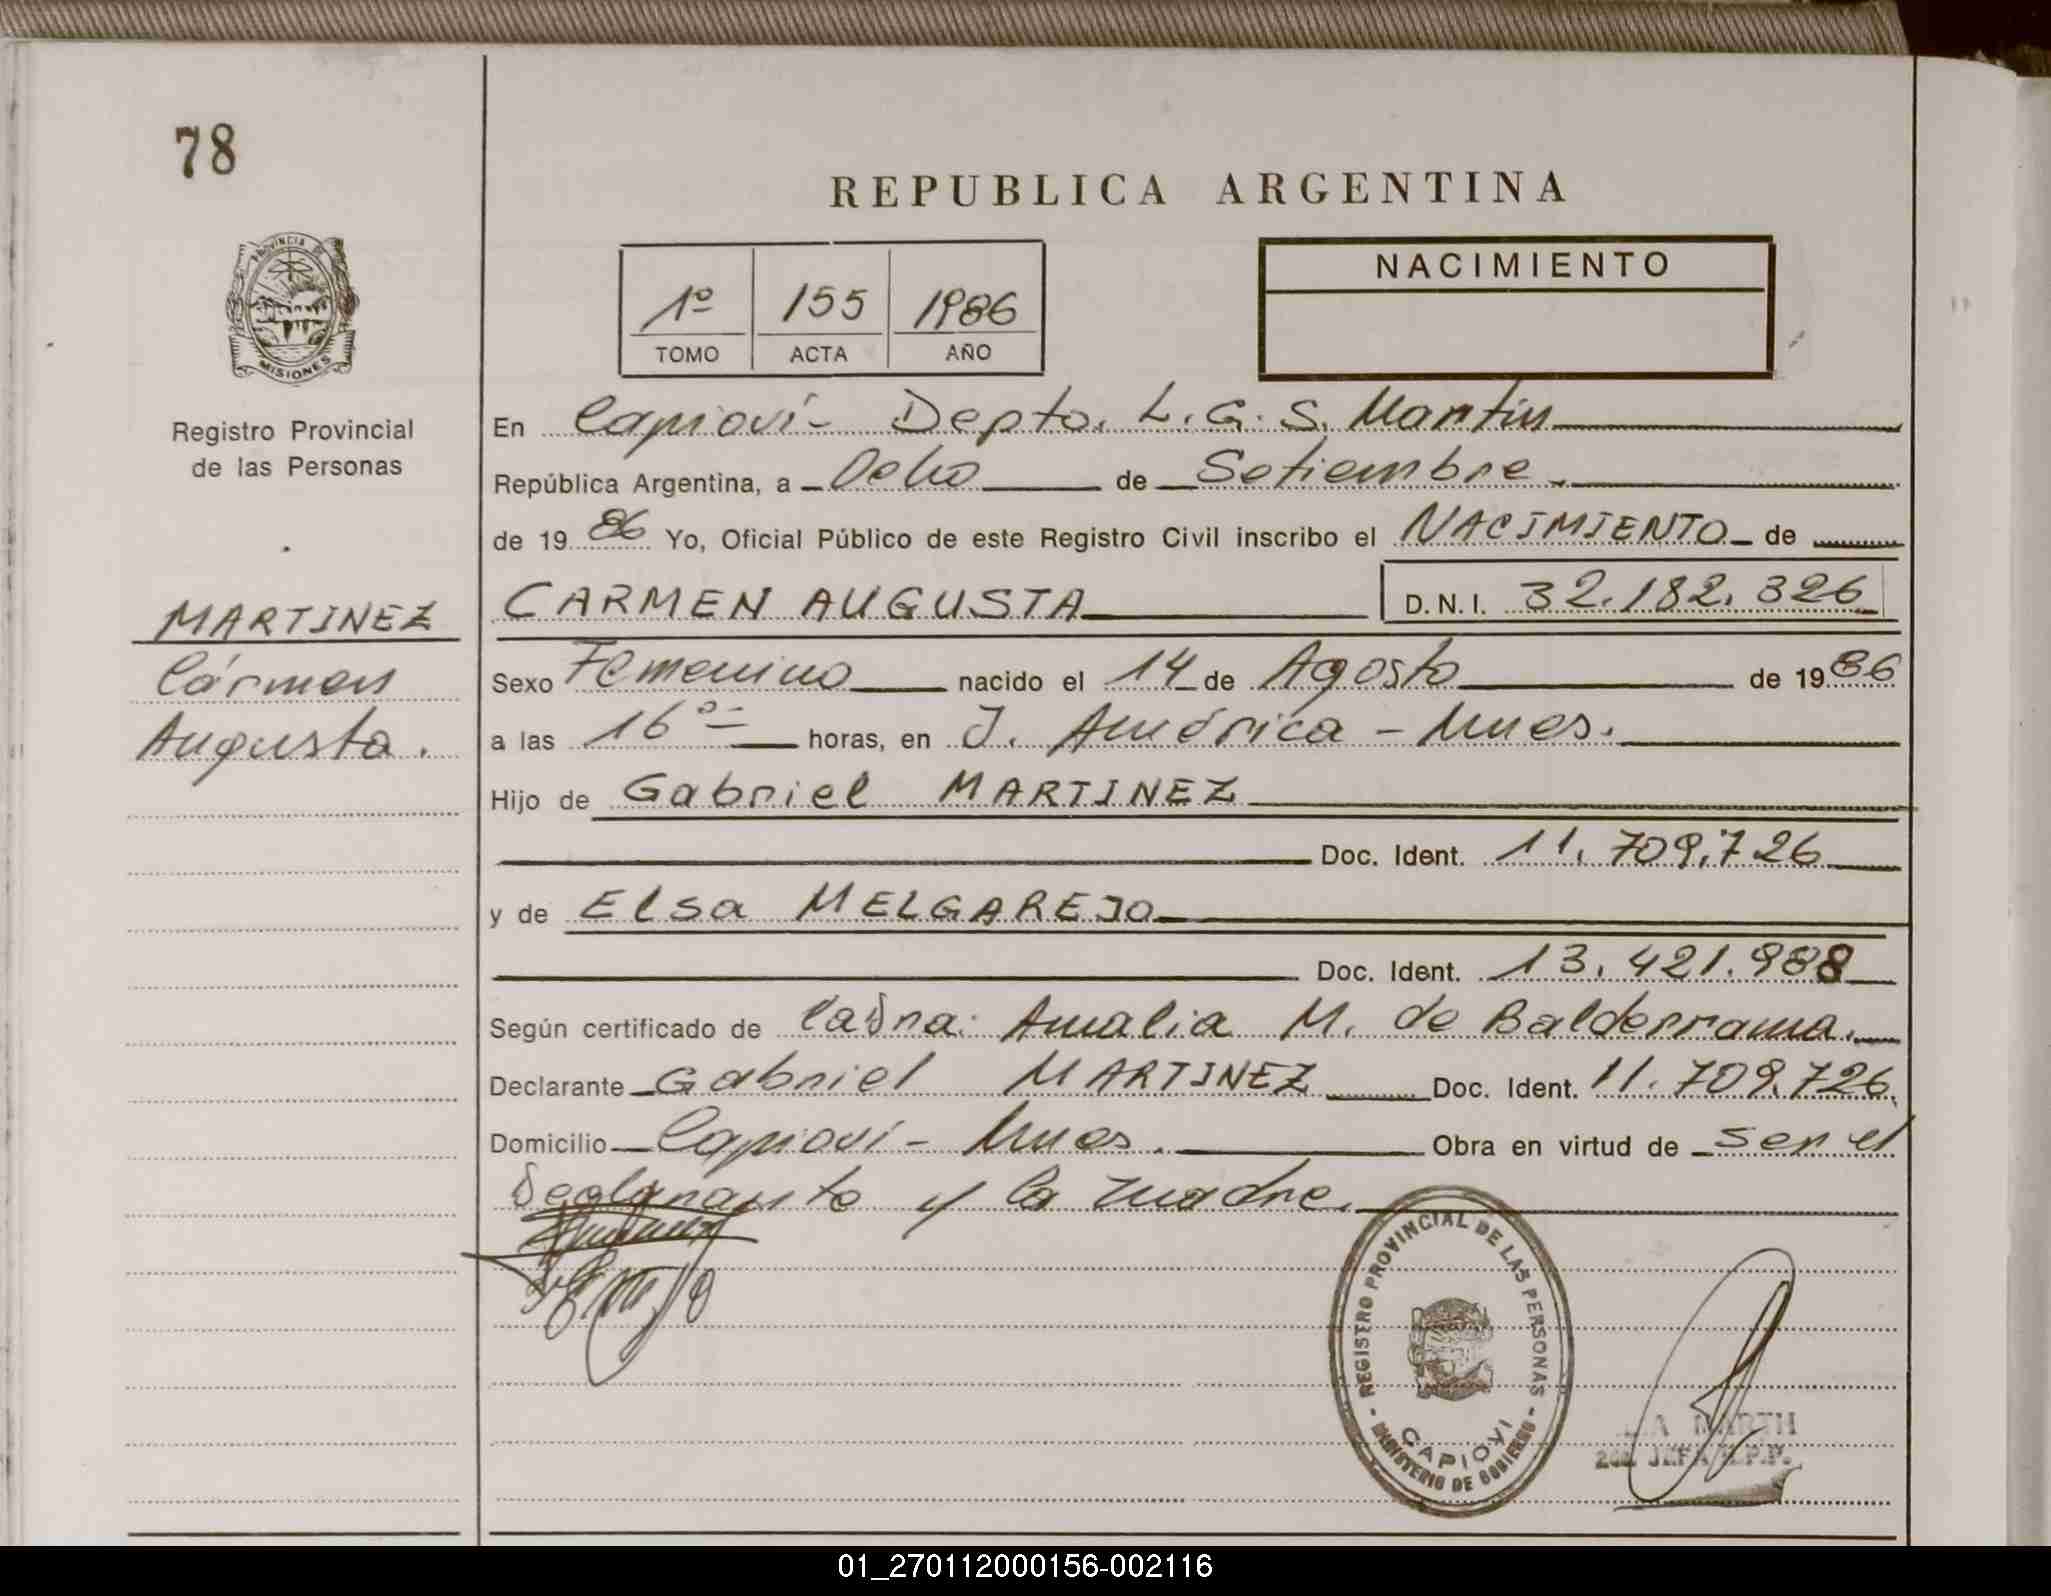 78
REPUBLICA ARGENTINA
PROVINCIA DE
MISIONES
1º 155 1986
TOMO ACTA AÑO
NACIMIENTO
Registro Provincial
de las Personas
MARTINEZ
Cármen
Augusta.
En Capioví - Depto. L. G. S. Martín
República Argentina, a Ocho de Setiembre.
de 1986 Yo, Oficial Público de este Registro Civil inscribo el NACIMIENTO de
CARMEN AUGUSTA D.N.I. 32.182.326
Sexo Femenino nacido el 14 de Agosto de 1986
a las 16 horas, en J. América - Mnes.
Hijo de Gabriel MARTINEZ
Doc. Ident. 11.709.726
y de Elsa MELGAREJO
Doc. Ident. 13.421.988
Según certificado de la Sra. Amalia M. de Balderrama.
Declarante Gabriel MARTINEZ Doc. Ident. 11.709.726
Domicilio Capioví - Mnes. Obra en virtud de ser el
Declarante y la madre.
REGISTRO PROVINCIAL DE LAS PERSONAS
CAPIOVI
- MINISTERIO DE GOBIERNO -
JEFA R.P.P.
01_270112000156-002116